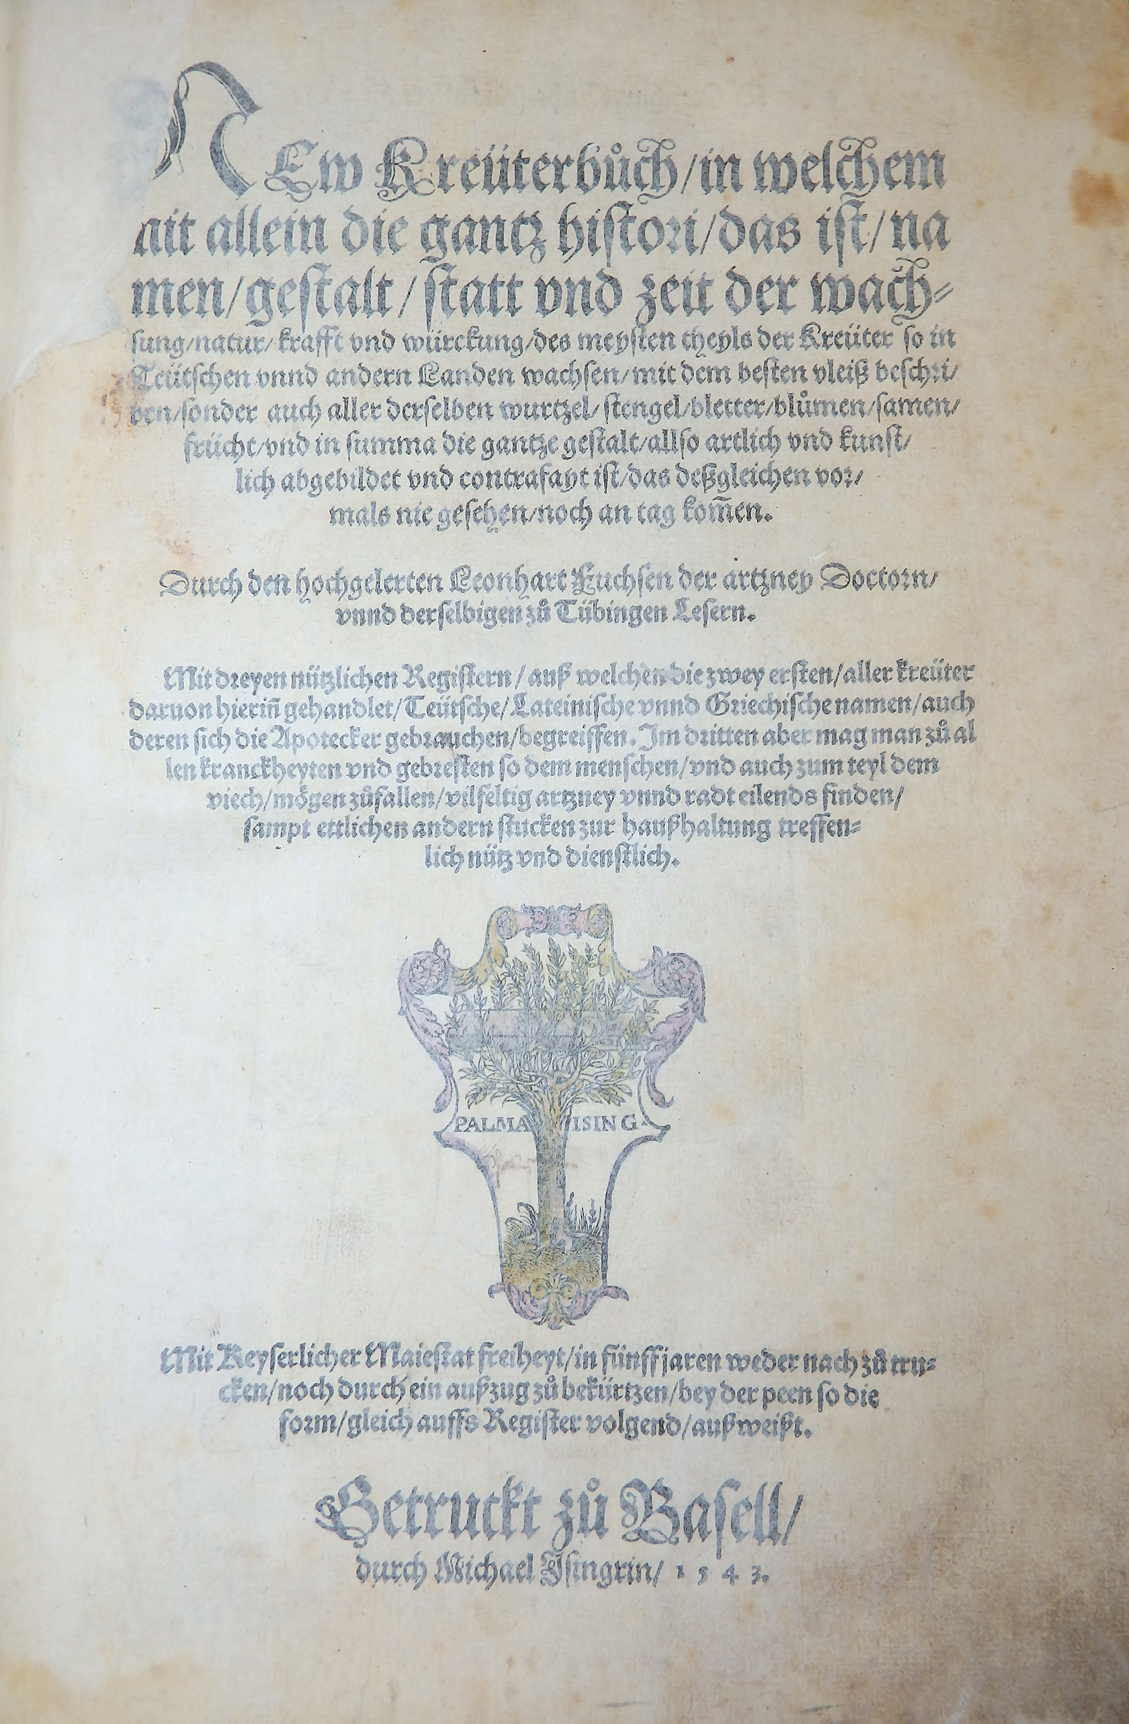 NEw Kreüterbůch/in welchem
nit allein die gantz histori/das ist/na
men/gestalt/statt vnd zeit der wach-
sung/natur/krafft vnd würckung/des meysten theyls der Kreüter so in
Teütschen vnnd andern Landen wachsen/mit dem besten vleiß beschri/
ben/sonder auch aller derselben wurtzel/stengel/bletter/blůmen/samen/
frücht/vnd in summa die gantze gestalt/allso artlich vnd kunst/
lich abgebildet vnd contrafayt ist/das deßgleichen vor/
mals nie gesehen/noch an tag kom̄en.
Durch den hochgelerten Leonhart Fuchsen der artzney Doctorn/
vnnd derselbigen zů Tübingen Lesern.
Mit dreyen nützlichen Registern/auß welchen die zwey ersten/aller kreüter
daruon hierin̄ gehandlet/Teütsche/Lateinische vnnd Griechische namen/auch
deren sich die Apotecker gebrauchen/begreiffen. Im dritten aber mag man zů al
len kranckheyten vnd gebresten so dem menschen/vnd auch zum teyl dem
viech/mögen zůfallen/vilfeltig artzney vnnd radt eilends finden/
sampt ettlichen andern stucken zur haußhaltung treffen-
lich nütz vnd dienstlich.
PALMA ISING.
Mit Keyserlicher Maiestat freiheyt/in fünff jaren weder nach zů tru-
cken/noch durch ein außzug zů bekürtzen/bey der peen so die
form/gleich auffs Register volgend/außweißt.
Getruckt zů Basell/
durch Michael Isingrin/ 1543.